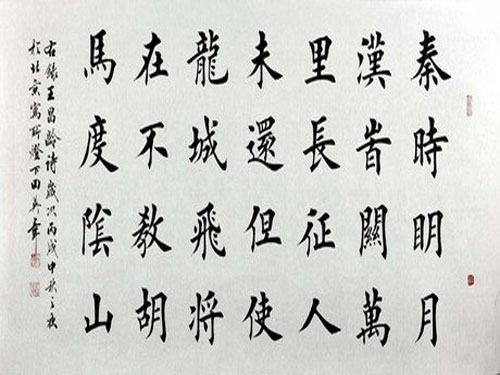 秦時眀月
漢旹關萬
里長征人
未還但使
龍城飛將
在不教胡
馬度陰山
右錄王昌齡詩歲次丙戌中秋之夜
於北京寓所燈下田英章